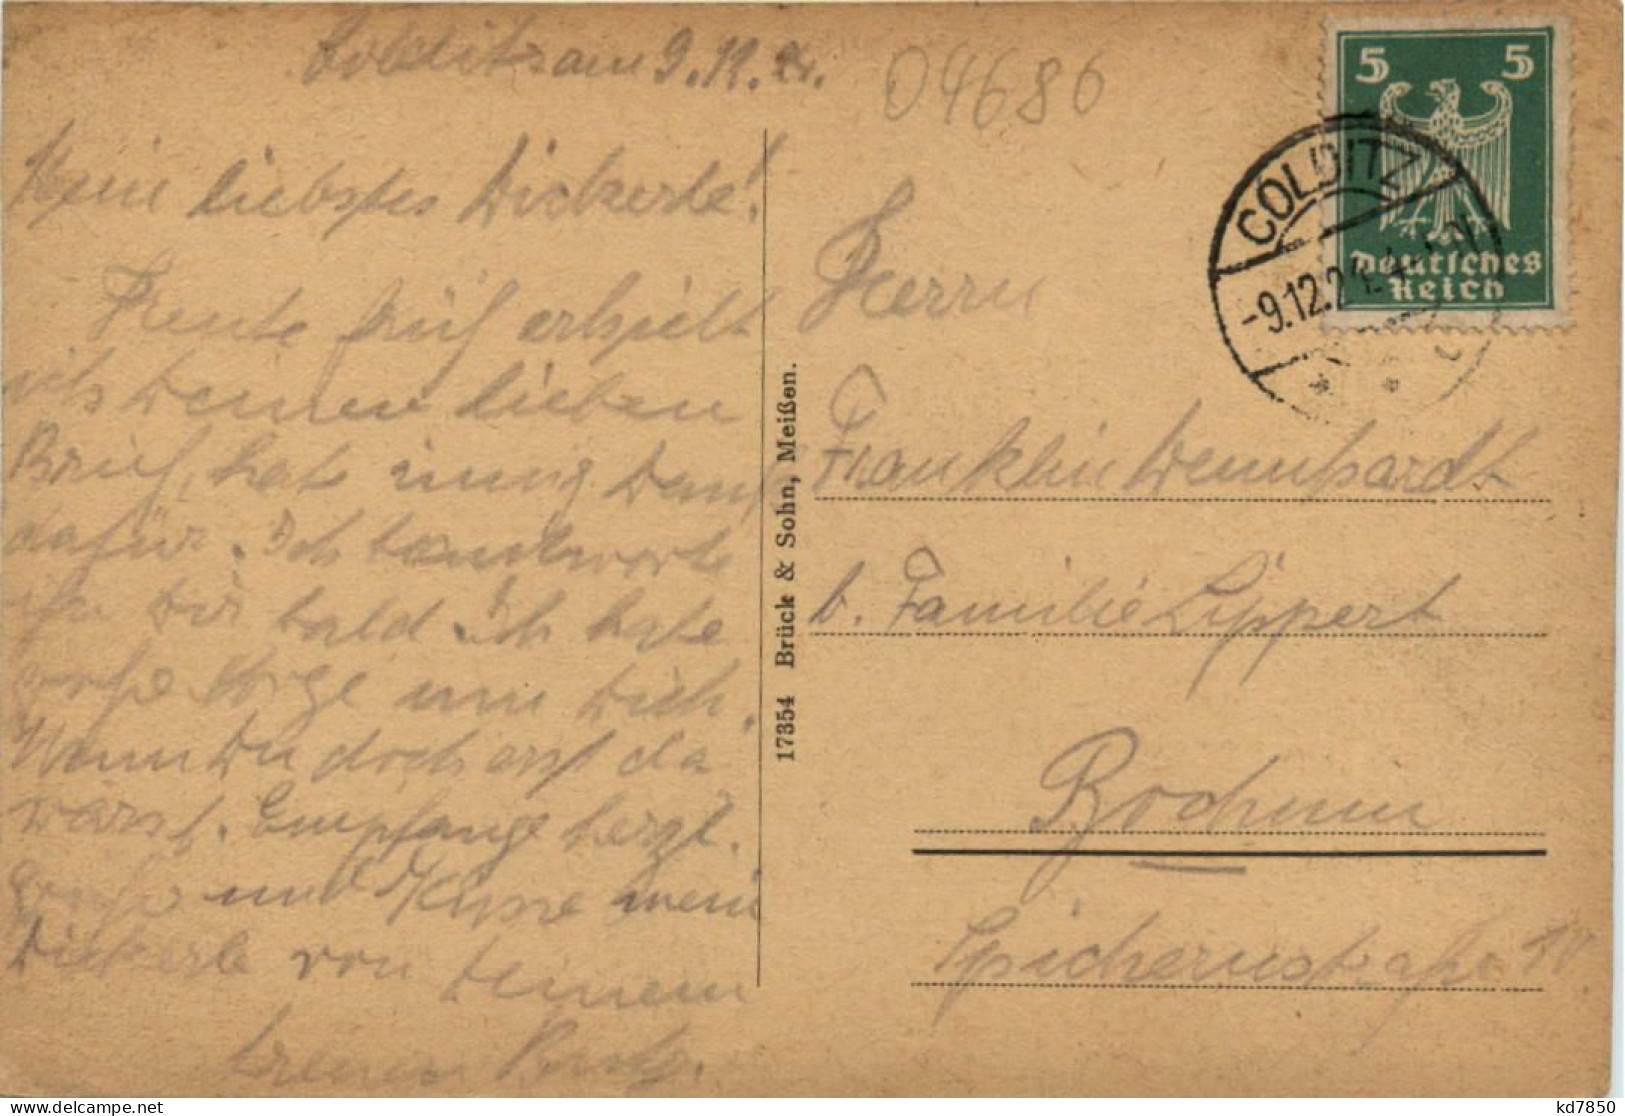 Colditz am 9.12.24.
04686
Mein liebstes Dickerle!
Heute früh erhielt
ich Deinen lieben
Brief, hab innig Dank
dafür. Ich beantworte
ihn Dir bald. Ich habe
große Sorge um Dich.
Wenn Du doch erst da
wärst. Empfange herzl.
Grüße und Küsse mein
Dickerle von Deinem
treuen
17354 Brück & Sohn, Meißen.
5 5
Deutsches
Reich
COLDITZ
-9.12.24.4-5N
Herrn
Franklin Wennhardt
b. Familie Lippert
Bochum
Spichernstraße
kd7850